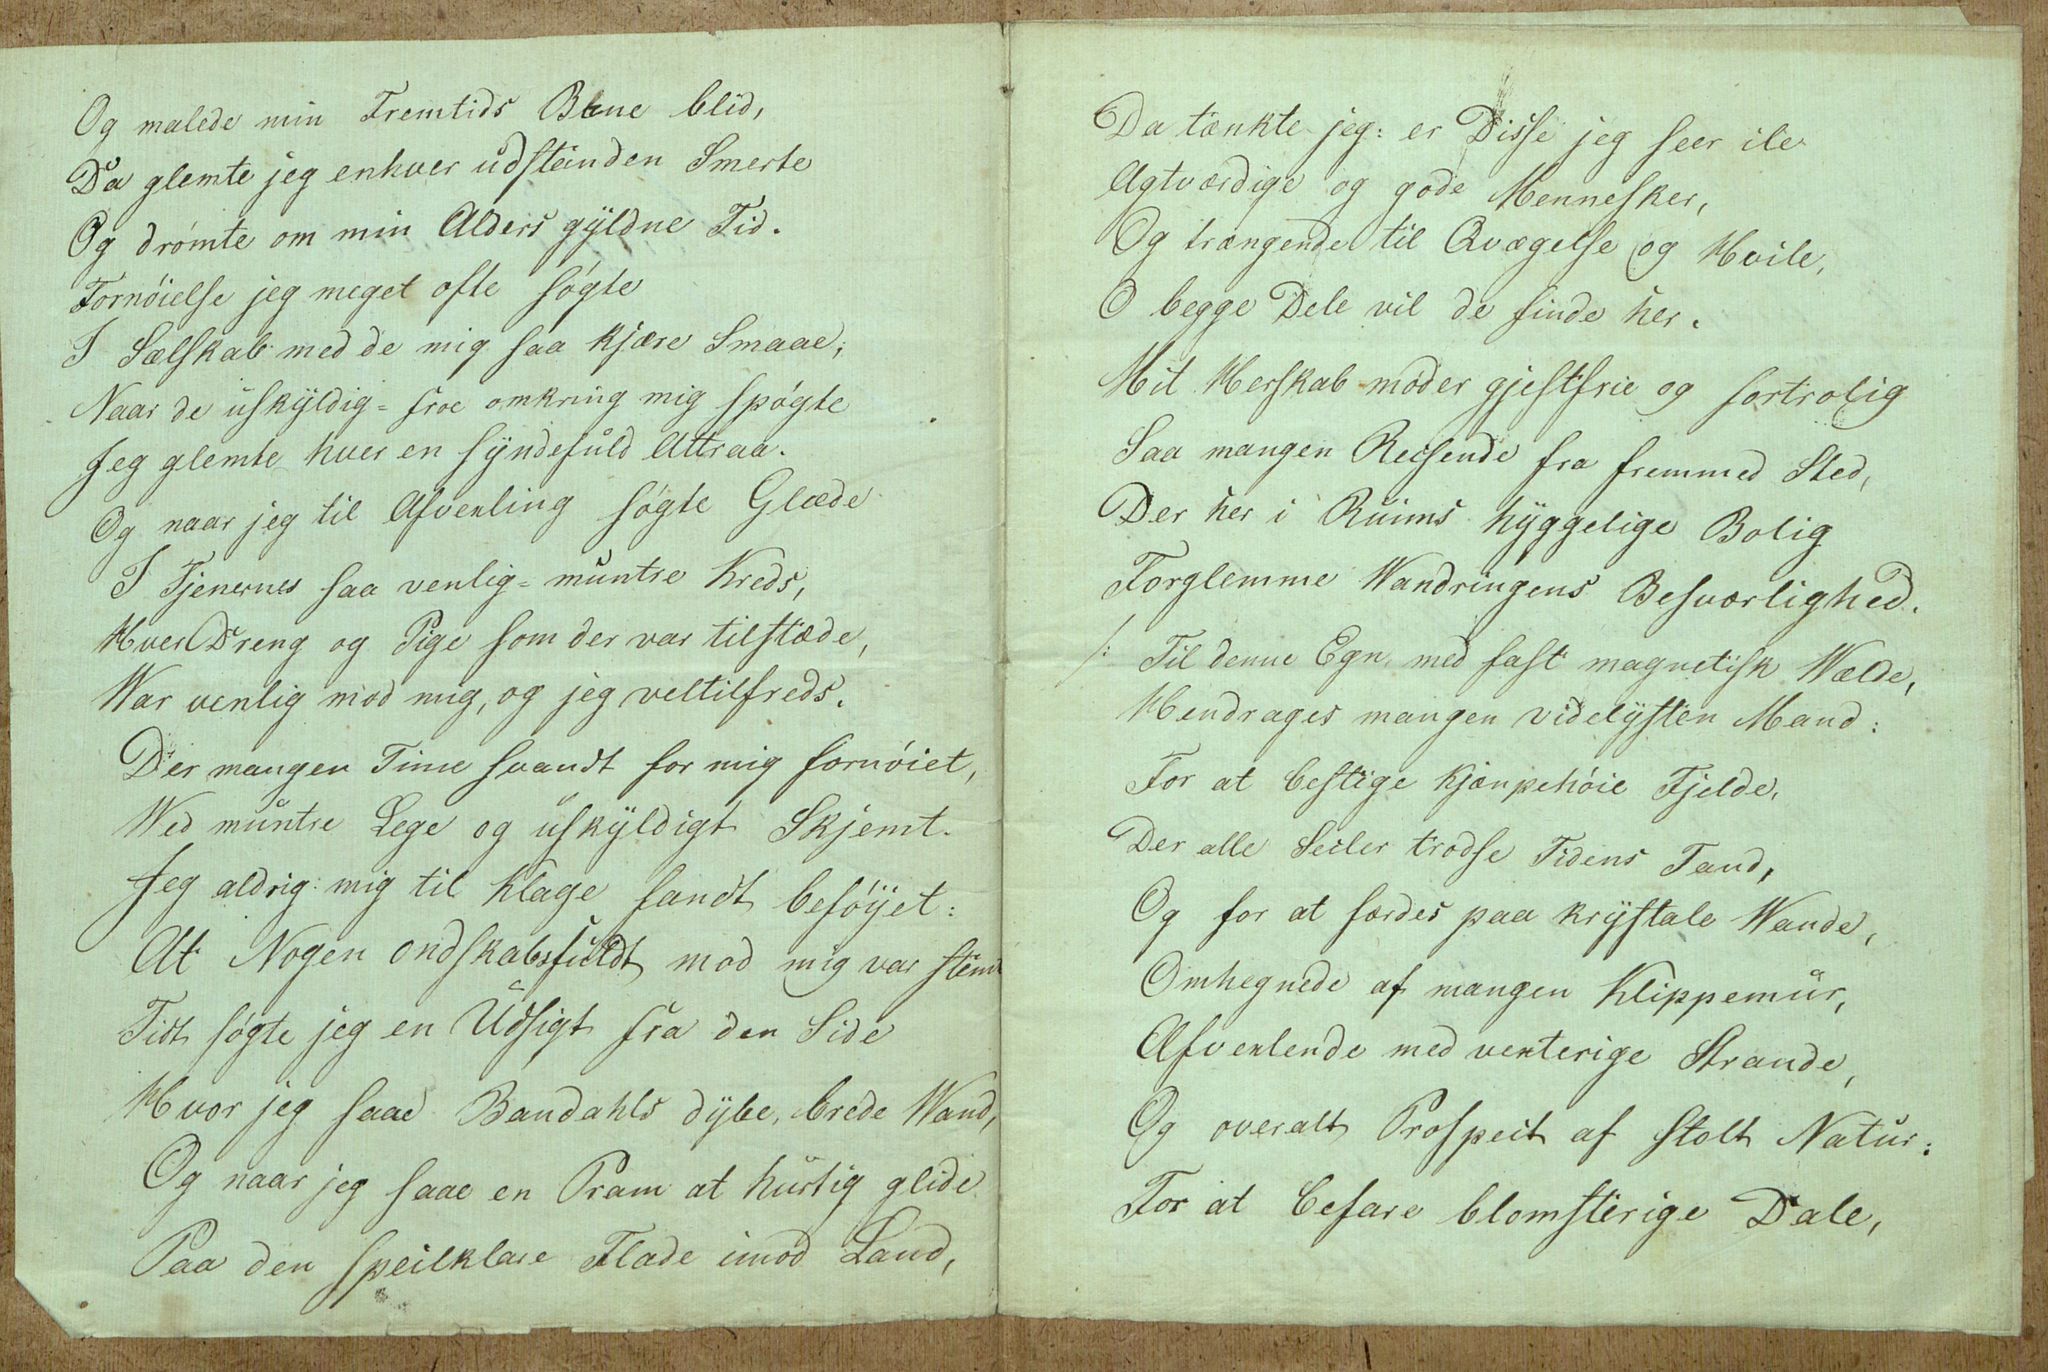 Og malede min Fremtids Bane blid,
Da glemte jeg enhver udstanden Smerte
Og drømte om min Alders gyldne Tid.
Fornøielse jeg meget ofte søgte
I Sælskab med de mig saa kjære Smaae;
Naar de uskyldig-froe omkring mig spøgte
Jeg glemte hver en syndefuld Attraa.
Og naar jeg til Afvexling søgte Glæde
I Tjenernes saa venlig-muntre Kreds,
Hver Dreng og Pige som der var tilstæde,
War venlig mod mig, og jeg veltilfreds.
Der mangen Time svandt for mig fornøiet,
Wed muntre Lege og uskyldigt Skjemt.
Jeg aldrig mig til Klage fandt beføyet:
At Nogen ondskabsfuldt mod mig var stemt
Tidt søgte jeg en Udsigt fra den Side
Hvor jeg saae Bandahls dybe, brede Wand,
Og naar jeg saae en Pram at hurtig glide
Paa den speilklare Flade imod Land,
Da tænkte jeg: er Disse jeg seer ile
Agtværdige og gode Mennesker,
Og trængende til Qvægelse og Hvile,
O begge Dele vil de finde her.
Mit Herskab møder gjestfrie og fortrolig
Saa mangen Reisende fra fremmed Sted,
Der her i Ruims hyggelige Bolig
Forglemme Wandringens Besværlighed.
/: Til denne Egn med fast magnetisk Wælde,
Hendrages mangen videlysten Mand:
For at bestige kjæmpehøie Fjelde,
Der alle Seiler trodse Tidens Tand,
Og for at færdes paa krystale Wande,
Omhegnede af mangen Klippemur,
Afvexlende med venterige Strande,
Og overalt Prospect af stolt Natur:
For at befare blomsterige Dale,